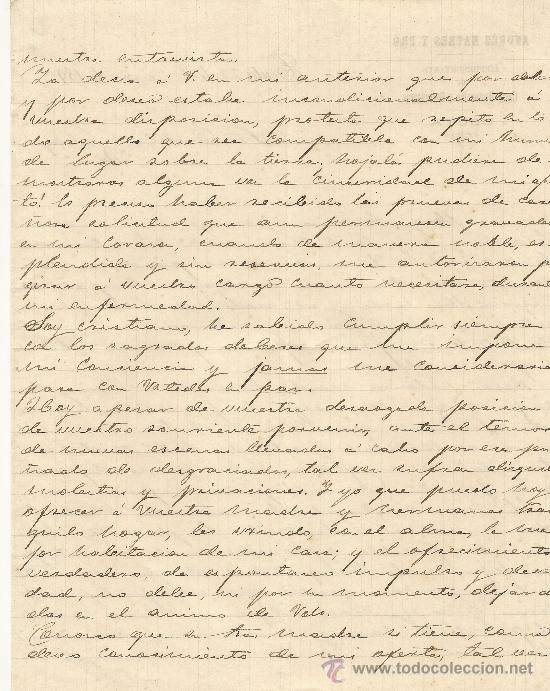 nuestra entrevista.
Le decia á V. en mi anterior que por deber
y por deseo estaba incondicionalmente á
vuestra disposicion, protesta que repito en to
do aquello que sea compatible con mi humil
de lugar sobre la tierra. Hojalá pudiera de-
mostraros alguna vez la cinceridad de mi
to! lo preciso haber recibido las pruebas de
solicitud que aun permanecen grabadas
en mi corazon, cuando de manera noble, es
plendida y sin reservas, me autorizaron p
girar á vuestro cargo cuanto necesitara, duran
mi enfermedad.
Soy cristiano, he sabido cumplir siempre
con los sagrados deberes que me impone
mi conciencia y jamas me consideraria
para con Ustedes en paz.
Hoy apesar de vuestra desaogada posicion
de vuestro sonriente porvenir, ante el temor
de nuevas escenas llevadas á cabo por ese pu
ñado de desgraciados, tal vez sufran disgus
molestias y privaciones. Y yo que puedo hoy
ofrecer á vuestra madre y hermanas tran
quilo hogar, les brindo con el alma, la me
jor habitacion de mi casa; y el ofrecimiento
verdadero, de espontaneo impulso y de
dad, no debe, ni por un momento, dejar d
das en el animo de Vds.
Conozco que su Sra. madre si tiene, como
deseo conocimiento de mi oferta, tal vez
www.todocoleccion.net